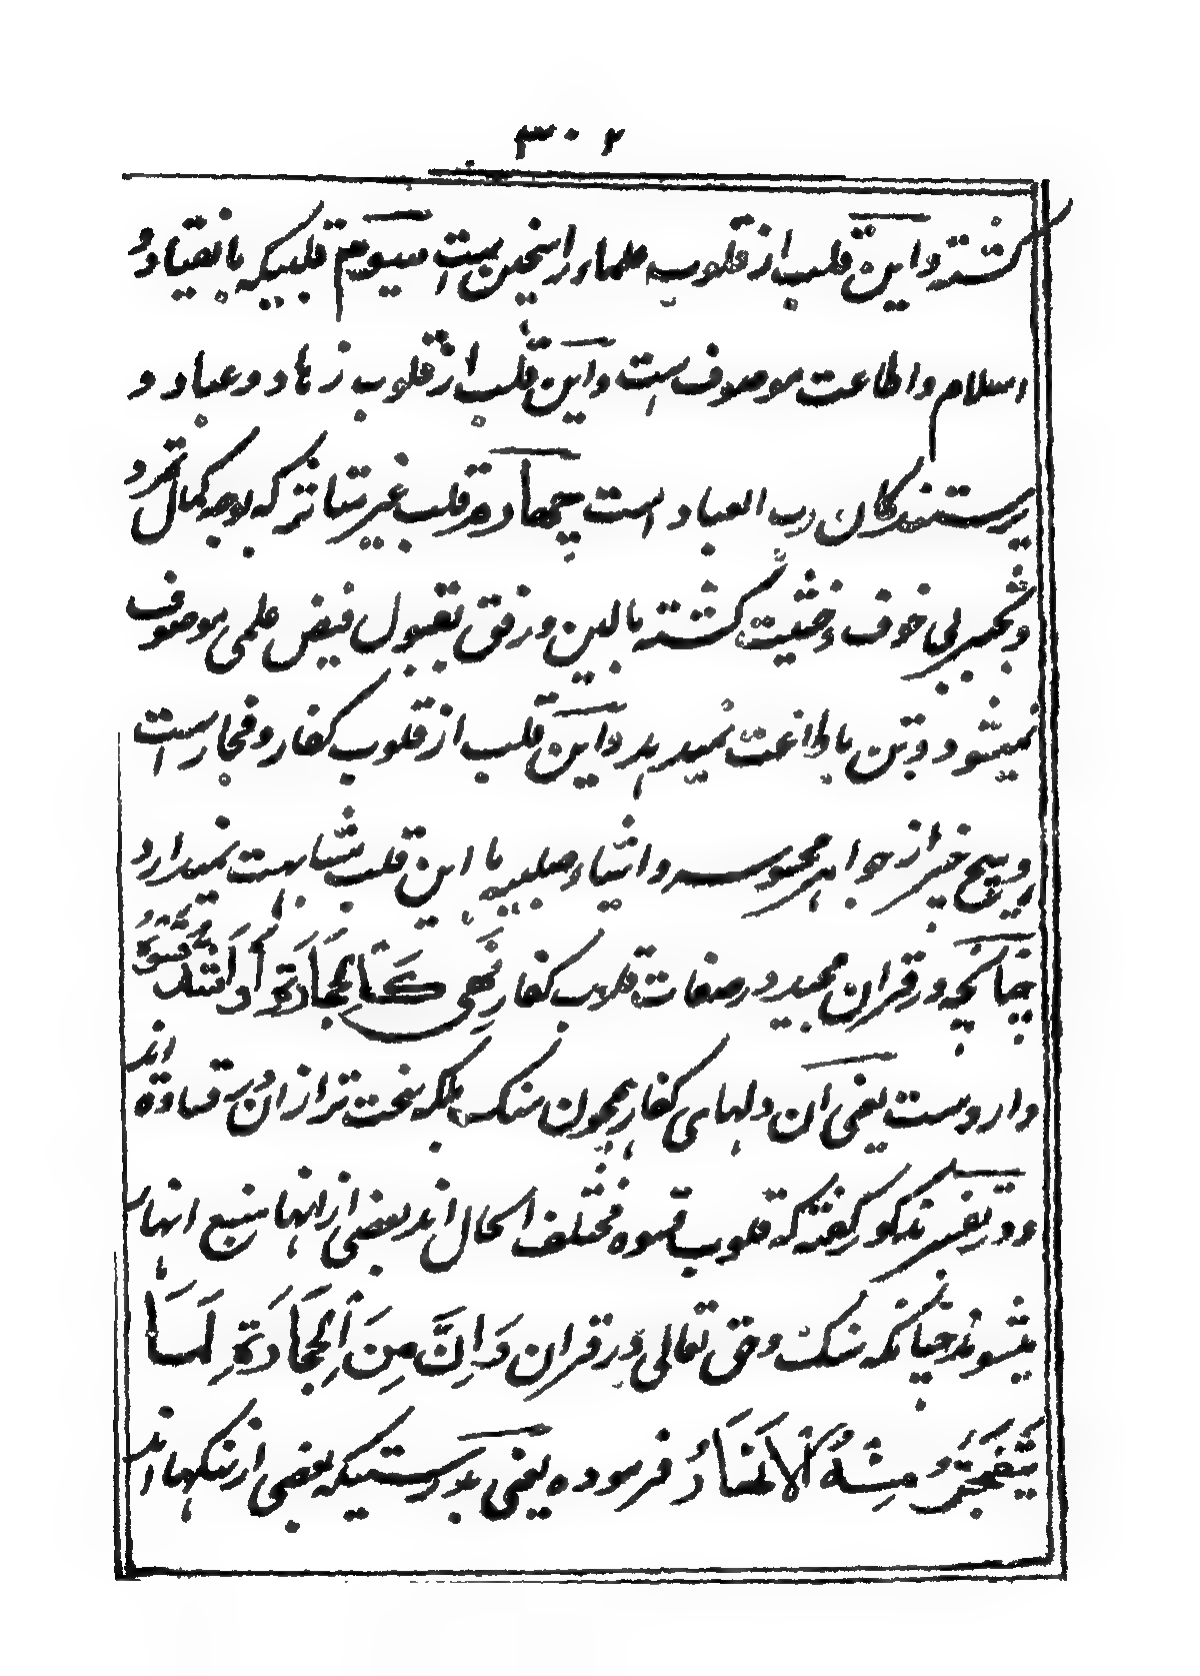 ۳۰۲
گشته و این قلب از قلوب علماء راسخین است سیوم قلبیکه بانقیاد
اسلام و اطاعت موصوف ست و این قلب از قلوب زهاد و عباد و
پرستندکان رب العباد است چهارم قلب غیر متاثر که بوجه کمال تمرد
و تجبر بی خوف و خشیت گشته بالین و رفق بقبول فیض علمی موصوف
نمیشود و تن باطاعت نمیدهد و این قلب از قلوب کفار و فجار است
و هیچ چیز از جواهر محسوسه و اشیاء صلبیه با این قلب مشابهت نمیدارد
چنانچه در قران مجید در صفات قلوب کفار فَهِیَ کَالْحِجَارَةِ اَوْ اَشَدُّ قَسْوَةً
وارد ست یعنی ان دلهای کفار همچون سنک اند بلکه سخت تر از ان در قساوة
و در تفسیر مذکور گفته که قلوب قسوه مختلف الحال اند بعضی از انها منبع انهار
میشوند چنانکه سنک و حق تعالی در قران وَ اِنَّ مِنَ الْحِجَارَةِ لَمَا
یَتَفَجَّرُ مِنْهُ الْاَنْهَارُ فرموده یعنی بدرستیکه بعضی از سنکها اند